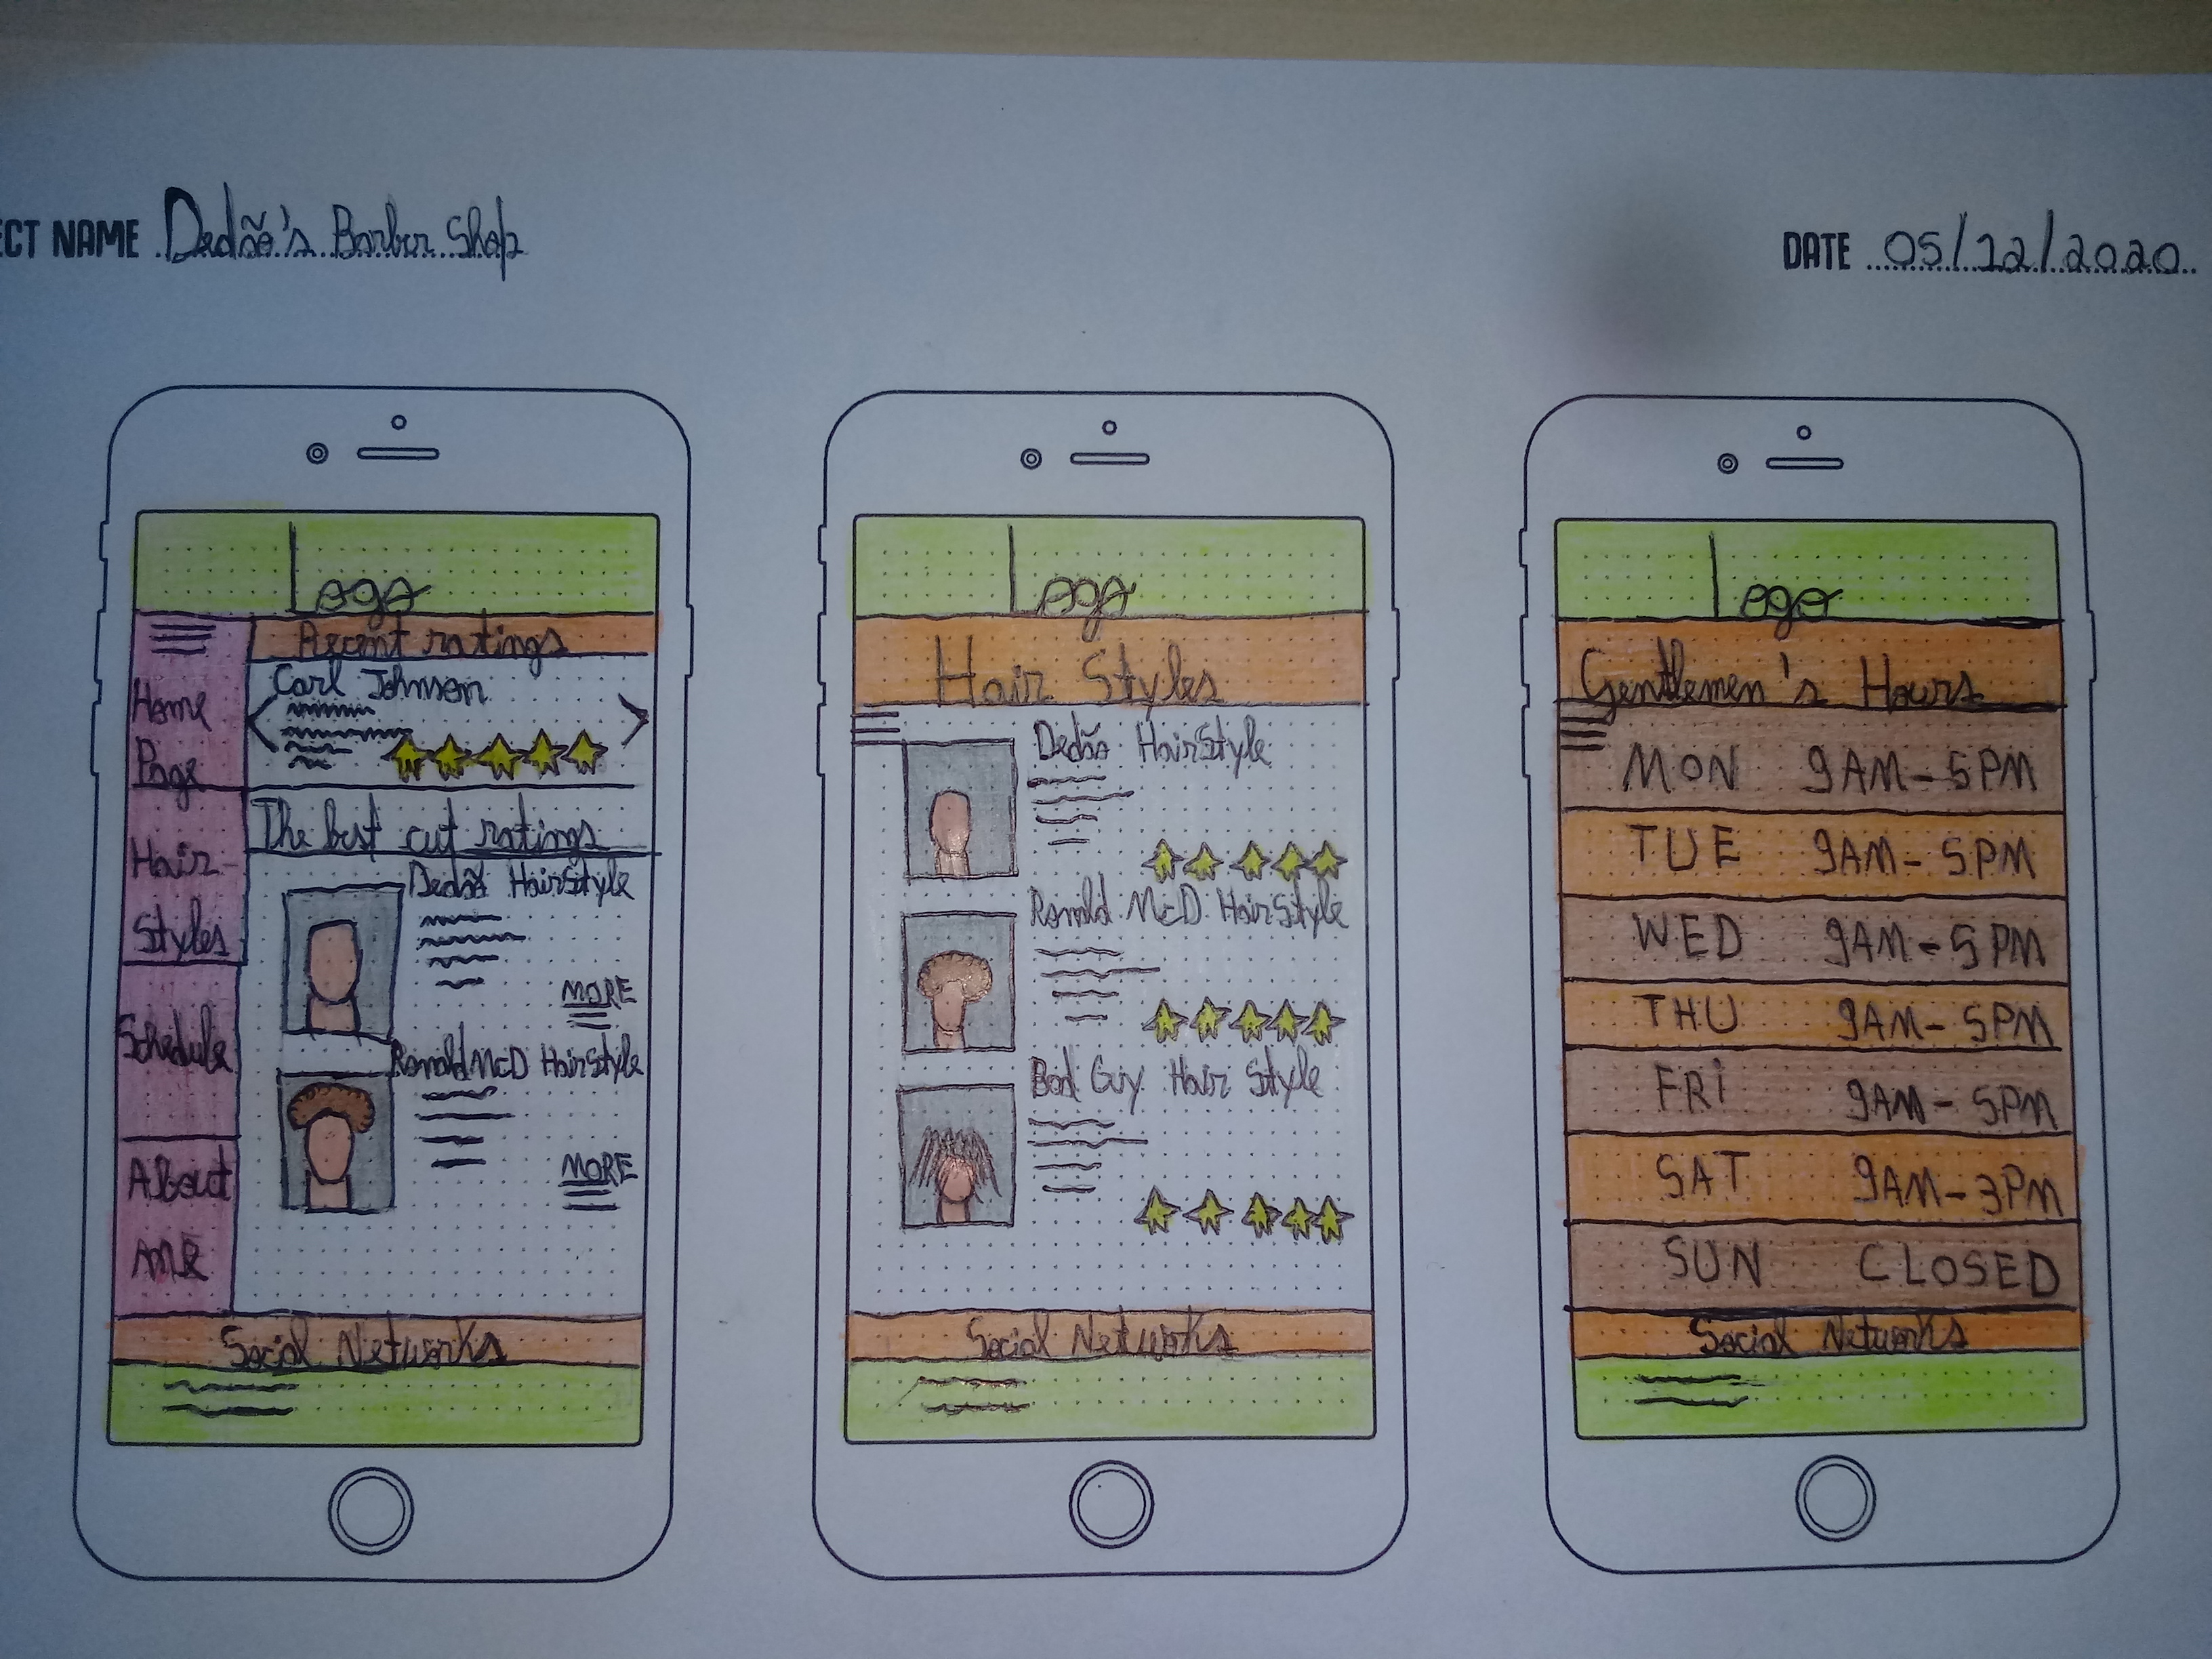 ECT NAME Dedão's Barber Shop
DATE 05/12/2020
Logo
Recent ratings
Carl Johnson
Home
Page
Hair
Styles
Schedule
About
Me
The best cut ratings
Dedão HairStyle
MORE
Ronald McD HairStyle
MORE
Social Networks
Logo
Hair Styles
Dedão HairStyle
Ronald McD HairStyle
Bad Guy Hair Style
Social Networks
Logo
Gentlemen's Hours
MON 9AM-5PM
TUE 9AM-5PM
WED 9AM-5PM
THU 9AM-5PM
FRi 9AM-5PM
SAT 9AM-3PM
SUN CLOSED
Social Networks